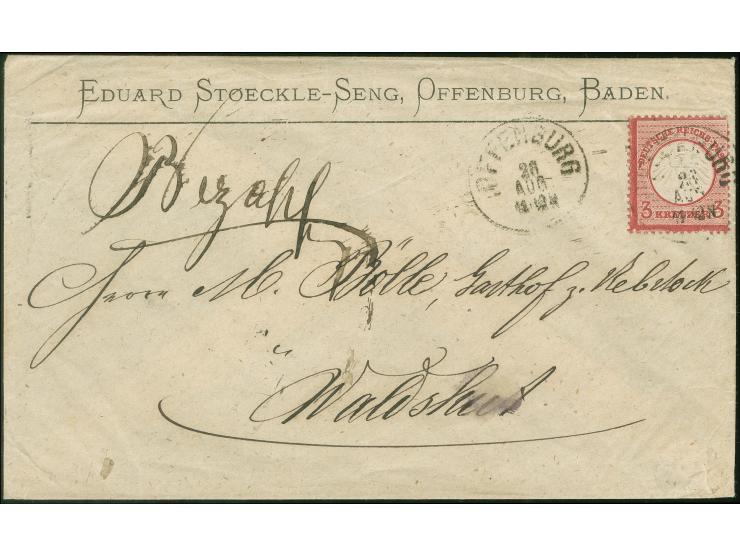 EDUARD STOECKLE-SENG, OFFENBURG, BADEN.
Bezahlt
OFFENBURG
28
AUG
DEUTSCHE REICHS-POST
3 KREUZER 3
Herrn M. Bölle, Gasthof z. Rebstock
Waldshut